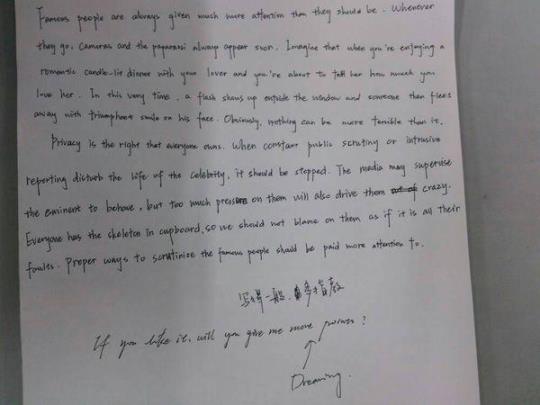 Famous people are always given much more attention than they should be. Whenever
they go, cameras and the paparassi always appear soon. Imagine that when you're enjoying a
romantic candle-lit dinner with your lover and you're about to tell her how much you
love her. In this very time, a flash shows up outside the window and someone then flees
away with triumphant smile on his face. Obviously, nothing can be more terrible than it.
Privacy is the right that everyone owns. When constant public scrutiny or intrusive
reporting disturb the life of the celebrity, it should be stopped. The media may supervise
the eminent to behave, but too much pressure on them will also drive them crazy.
Everyone has the skeleton in cupboard, so we should not blame on them as if it is all their
foules. Proper ways to scrutinize the famous people should be paid more attention to.
写得一般,多多指教
If you like it, will you give me more pointes?
Dreaming.